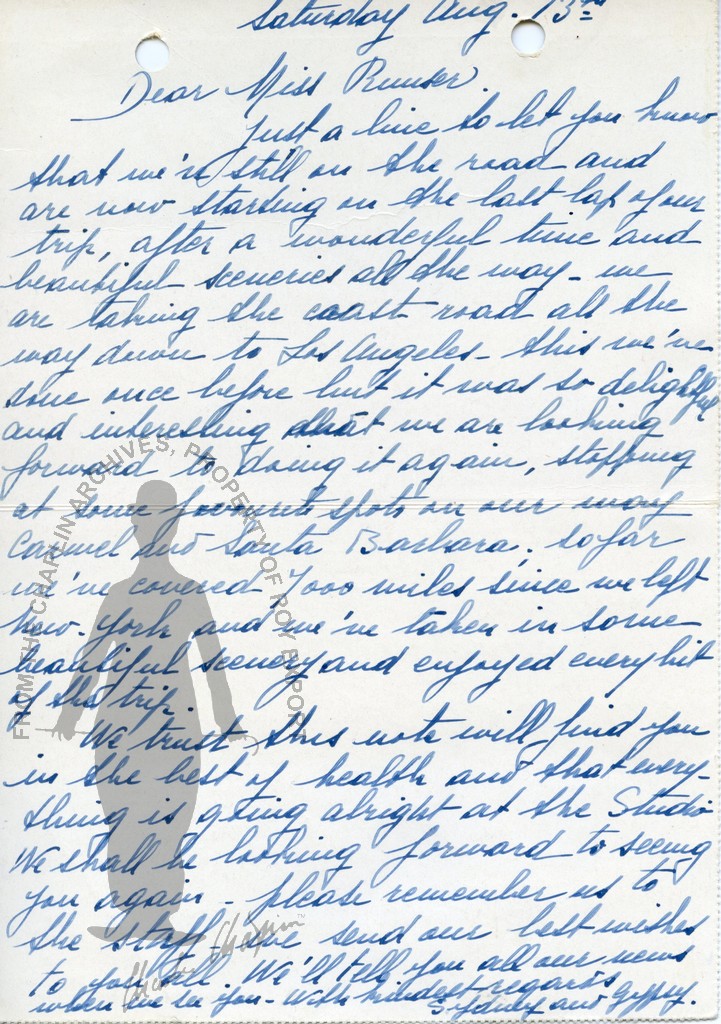 Saturday Aug. 13th
Dear Miss Runser.
Just a line to let you know
that we're still on the road and
are now starting on the last lap of our
trip, after a wonderful time and
beautiful sceneries all the way - we
are taking the coast road all the
way down to Los Angeles - this we've
done once before but it was so delightful
and interesting that we are looking
forward to doing it again, stopping
at some favourite spots on our way
Carmel and Santa Barbara, so far
we've covered 7000 miles since we left
New-York and we've taken in some
beautiful scenery and enjoyed every bit
of the trip.
We trust this note will find you
in the best of health and that every-
thing is going alright at the Studio
We shall be looking forward to seeing
you again - please remember us to
the staff - we send our best wishes
to you all. We'll tell you all our news
when we see you - With kindest regards
Sydney and Gypsy.
FROM THE CHAPLIN ARCHIVES, PROPERTY OF ROY EXPORT
Charlie Chaplin